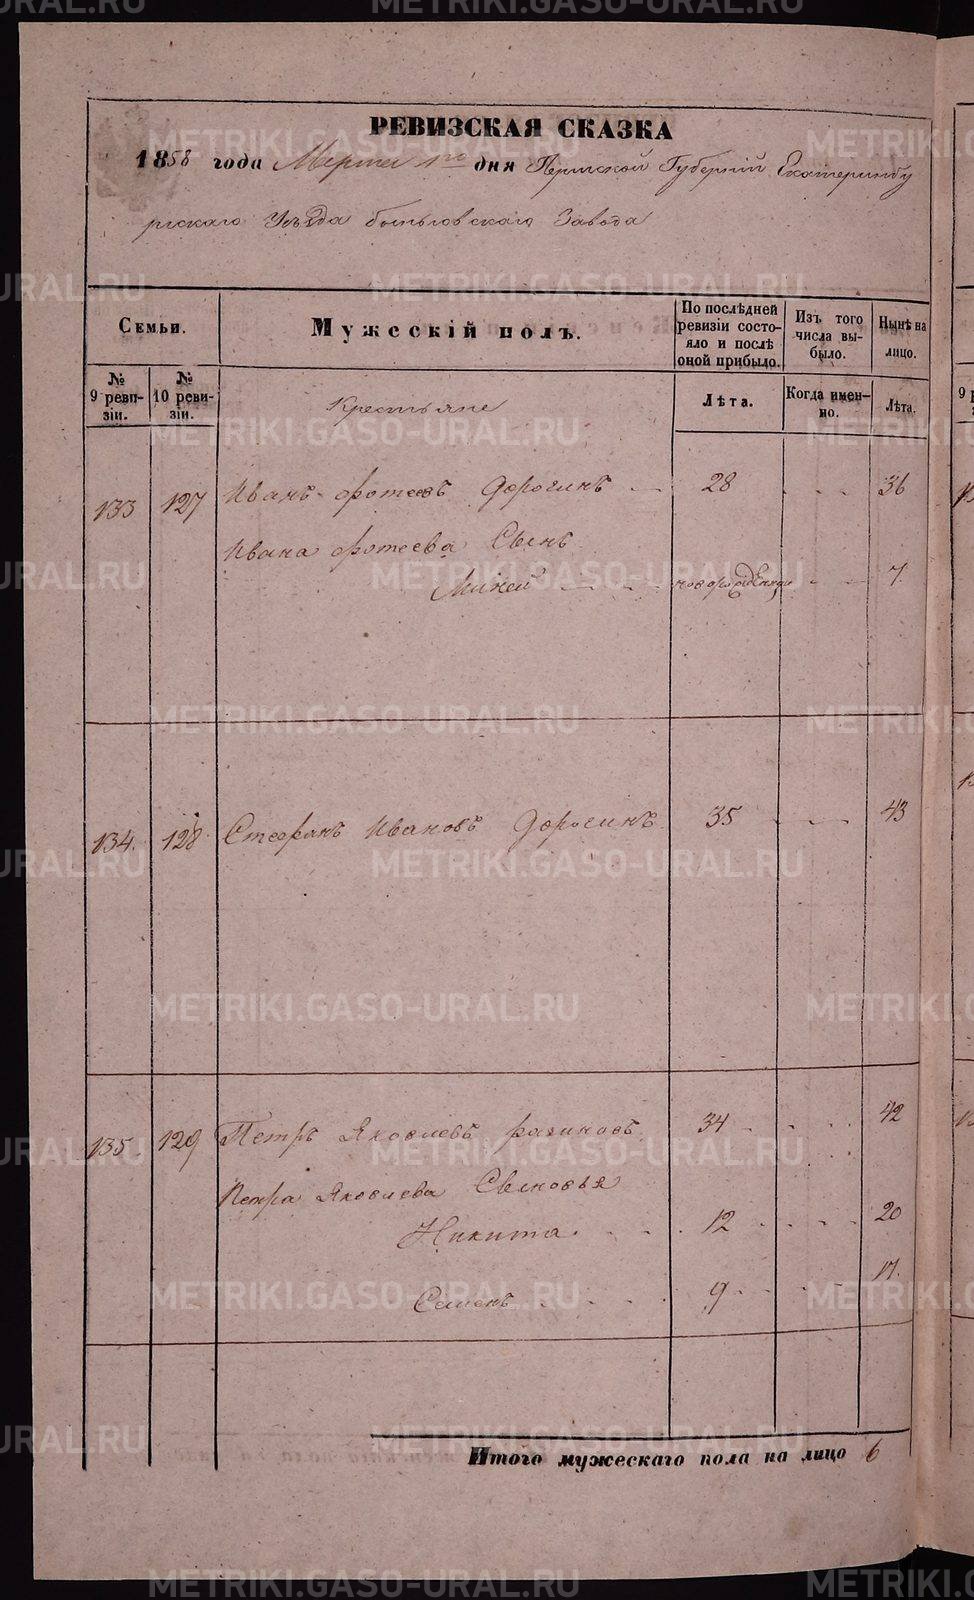 РЕВИЗСКАЯ СКАЗКА
1858 года Марта 1го дня Пермской Губерніи Екатеринбу
ргскаго Уѣзда Заводa
Семьи.
Мужескій полъ.
По послѣдней ревизіи состояло и послѣ оной прибыло.
Изъ того числа выбыло.
Нынѣ на лицо.
№ 9 ревизіи.
№ 10 ревизіи.
Крестьяне
Лѣта.
Когда именно.
Лѣта.
133 127 Иванъ Фотеевъ Дорогинъ 28 36
Ивана Фотеева Сынъ
Миней новорожденный 7
134. 128. Стефанъ Ивановъ Дорогинъ 35 43
135 129 Петръ Яковлевъ 34 42
Петра Яковлева Сыновья
Никита 12 20
Семенъ 9 17.
Итого мужескаго пола на лицо 6
METRIKI.GASO-URAL.RU